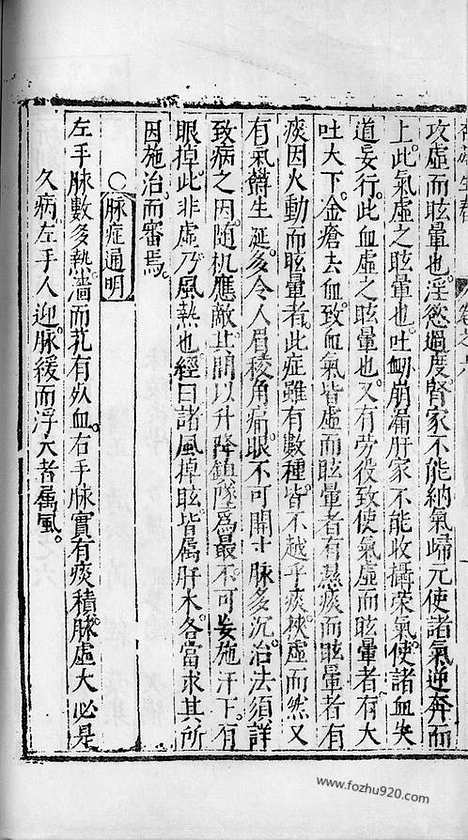 攻虛而眩暈也淫慾過度腎家不能納氣歸元使諸氣逆奔而
上此氣虛之眩暈也吐衂崩漏肝家不能收攝榮氣使諸血失
道妄行此血虛之眩暈也又有労役致使氣虛而眩暈者有大
吐大下金瘡去血致血氣皆虛而眩暈者有熱痰而眩暈者有
痰因火動而眩暈者此症雖有數種皆不越乎痰挾虛而然又
有氣欝生涎多令人眉稜角痛眼不可開寸脉多沉治法須詳
致病之因随机應敵其間以升降鎮墜為最不可妄施汗下有
眼掉此非虛乃風熱也經曰諸風掉眩皆属肝木各當求其所
因施治而審焉
○脉症通明
左手脉數多熱濇而芤有血右手脉實有痰積脉虛大必是
久病左手人迎脉緩而浮大者属風。
www.fozhu920.com